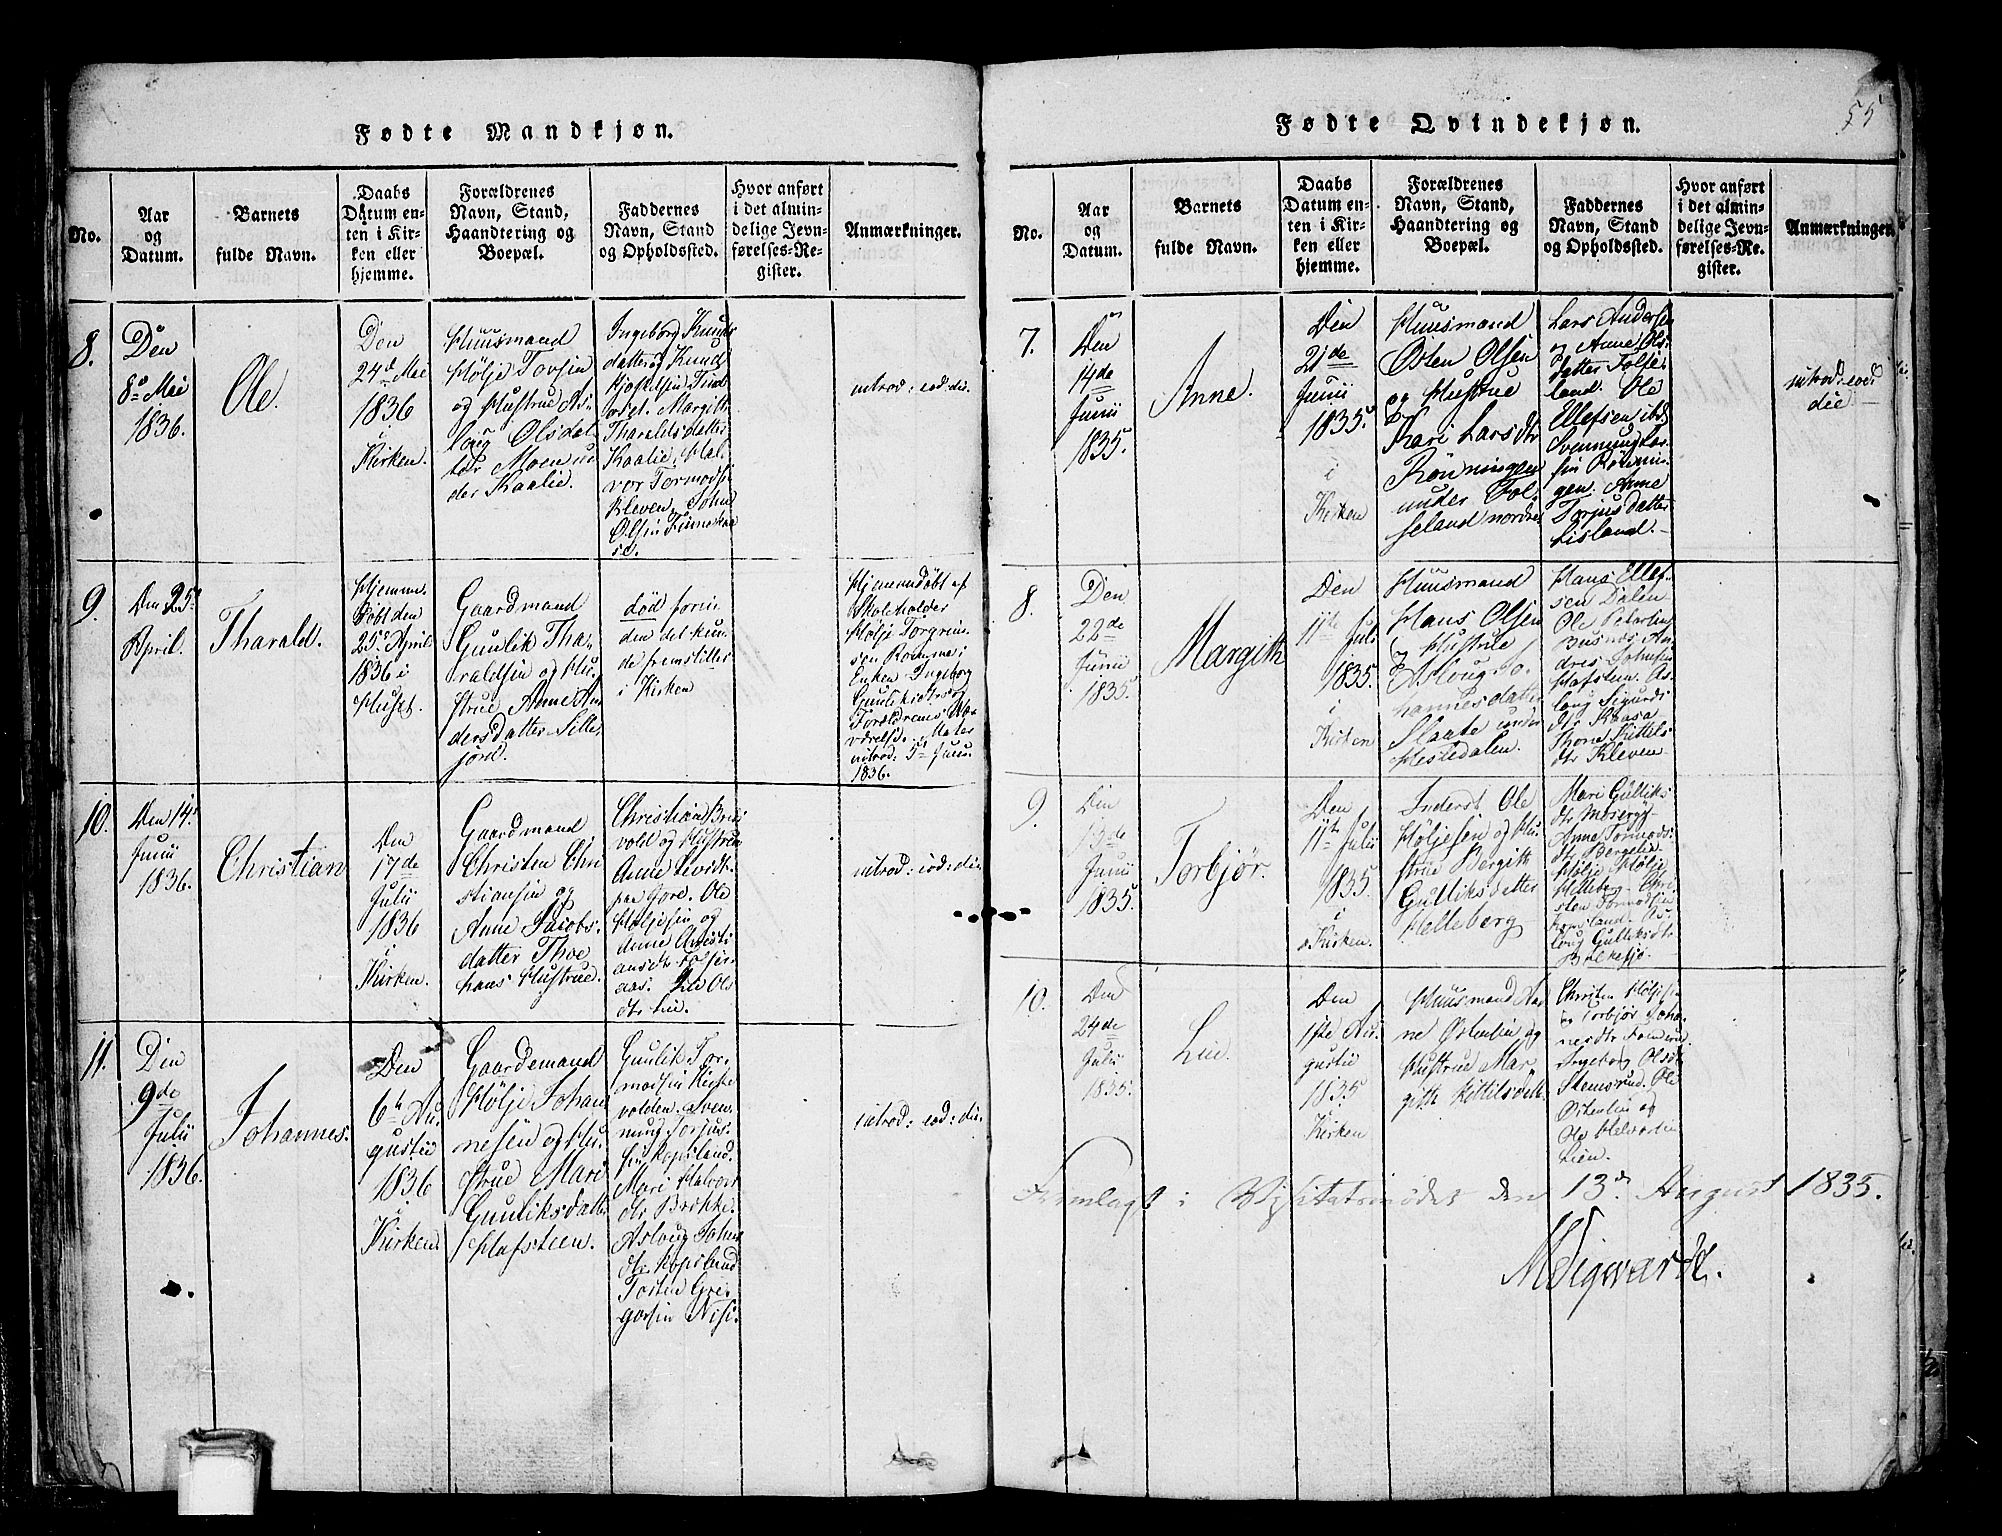 55
Fødte Mandkjøn.
No.
Aar
og
Datum.
Barnets
fulde Navn.
Daabs
Datum en-
ten i Kir-
ken eller
hjemme.
Forældrenes
Navn, Stand,
Haandtering og
Boepæl.
Faddernes
Navn, Stand
og Opholdssted.
Hvor anført
i det almin-
delige Jevn-
førelses-Re-
gister.
Anmærkninger.
8.
Den
8de Mei
1836.
Ole.
Den
24de Mei
1836
i
Kirken.
Huusmand
Høljе Torsin
og Hustrue As-
loug Olsdat-
ter Moen un-
der Kaalie.
Ingeborg Knuds
datter, Knud
Margith
Tharaldsdatter
Kaalie, Hal-
vor Tormods
Kleven, John
Olsen
introd: eod: die.
9.
Den 25de
April.
Tharald.
Hjemme-
døbt den
25de April
1836 i
Huset.
Gaardmand
Gunlik Tha-
raldsen og Hu-
strue Anne An-
dersdatter Lille-
jord.
død forin-
den det kun-
de fremstilles
i Kirken
Hjemmedøbt af
Skoleholder
Hølje Torgrim-
sen Romme i
Enken Ingeborg
Gunliksdtr og
Forældrenes Næ-
værelse. Moder
introd. 5te Juni
1836.
10.
Den 14de
Junii
1836.
Christian
Den
17de
Julii
1836
i
Kirken.
Gaardmand
Christen Chri
stiansen og
Anne Jacobs-
datter Thoe
hans Hustrue.
Christian
vold og Hustrue
Anne
paa Gore. Ole
Høljesen og
Anne Christi
ansdtr
aas. Ole
dtr Lie.
introd: eod: die.
11.
Den
9de
Julii
1836.
Johannes.
Den
6te Au-
gustii
1836
i
Kirken
Gaardemand
Hølje Johan
nesen og Hu-
strue Mari
Gunliksdatter
Hafsteen.
Gunlik Tor-
modsen Kirke
volden. Sven-
nung Torjus-
sen Kopsland.
Mari Halvors
dtr Brekke.
Asloug Johns
dtr Kopsland
Torsten Gre-
gorsen Nisi.
introd: eod: die.
Fødte Qvindekjøn.
No.
Aar
og
Datum.
Barnets
fulde Navn.
Daabs
Datum en-
ten i Kir-
ken eller
hjemme.
Forældrenes
Navn, Stand,
Haandtering og
Boepæl.
Faddernes
Navn, Stand
og Opholdssted.
Hvor anført
i det almin-
delige Jevn-
førelses-Re-
gister.
Anmærkninger.
7.
Den
14de
Junii
1835.
Anne.
Den
21de
Junii
1835.
i
Kirken
Huusmand
Østen Olsen
og Hustrue
Kari Larsdtr
Rønningen
under Fol-
seland nordre
Lars Andersen
og Anne Ols-
datter Folse-
land. Ole
Ellefsen ibd.
Svennung Lar-
sen Rønnin-
gen. Anne
Torjusdatter
Lisland.
introd: eod:
die.
8.
Den
22de
Junii
1835.
Margith
Den
11te Juli
1835.
i
Kirken
Huusmand
Hans Olsen
og Hustrue
Asloug Jo-
hannesdatter
Slaate under
Hestedalen.
Hans Ellef-
sen Dalen
Ole Petersen
Busnes An-
dres Johnsen
Hafsten. As-
loug Sigurds
dtr Kaasa
Thone Kittels
dtr Kleven
9.
Den
13de
Junii
1835.
Torbjør.
Den
11te Julii
1835
i
Kirken.
Inderst Ole
Høljesen og Hu-
strue Bergith
Gulliksdatter
Helleberg
Mari Gulliks
dtr
Anne Tormods-
dtr Bergelie
Hølje Hølje
Helleberg. Chri-
sten Tormodsen
As-
loug Gulliksdtr
Bolkesjø.
10.
Den
24de
Julii
1835.
Liv.
Den
1ste Au-
gustii
1835
i
Kirken
Huusmand Aa-
ne Østensen og
Hustrue Mar-
gith Kittilsdatt
Christen Høljesen
og Torbjør Joha-
nesdtr
Ingeborg Olsdtr
Stemsrud. Ole
Østensen og
Ole Helvorsen
Lien.
Fremlagt i Visitatsmødet den 13de August 1835.
MSigwardt.